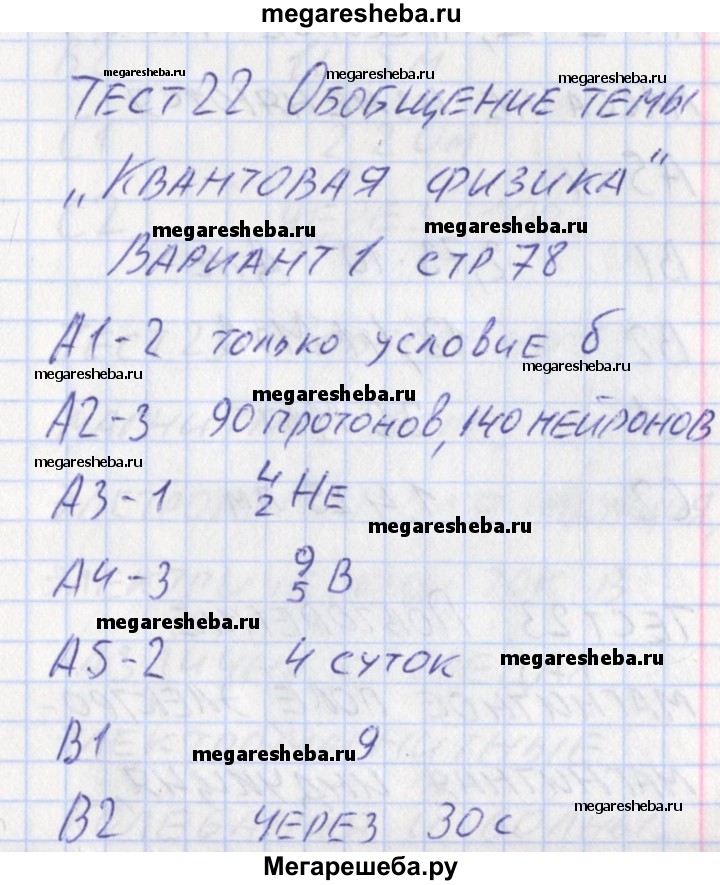 megaresheba.ru
megaresheba.ru megaresheba.ru megaresheba.ru
Тест 22 Обобщение темы
„Квантовая физика“
megaresheba.ru megaresheba.ru
Вариант 1 стр 78
А1-2 только условие б
megaresheba.ru megaresheba.ru
megaresheba.ru
А2-3 90 протонов, 140 нейронов
megaresheba.ru
А3-1 ⁴₂Не
megaresheba.ru
А4-3 ⁹₅В
megaresheba.ru
А5-2 4 суток megaresheba.ru
В1 megaresheba.ru 9
megaresheba.ru
В2 через 30 с
Мегарешеба.ру